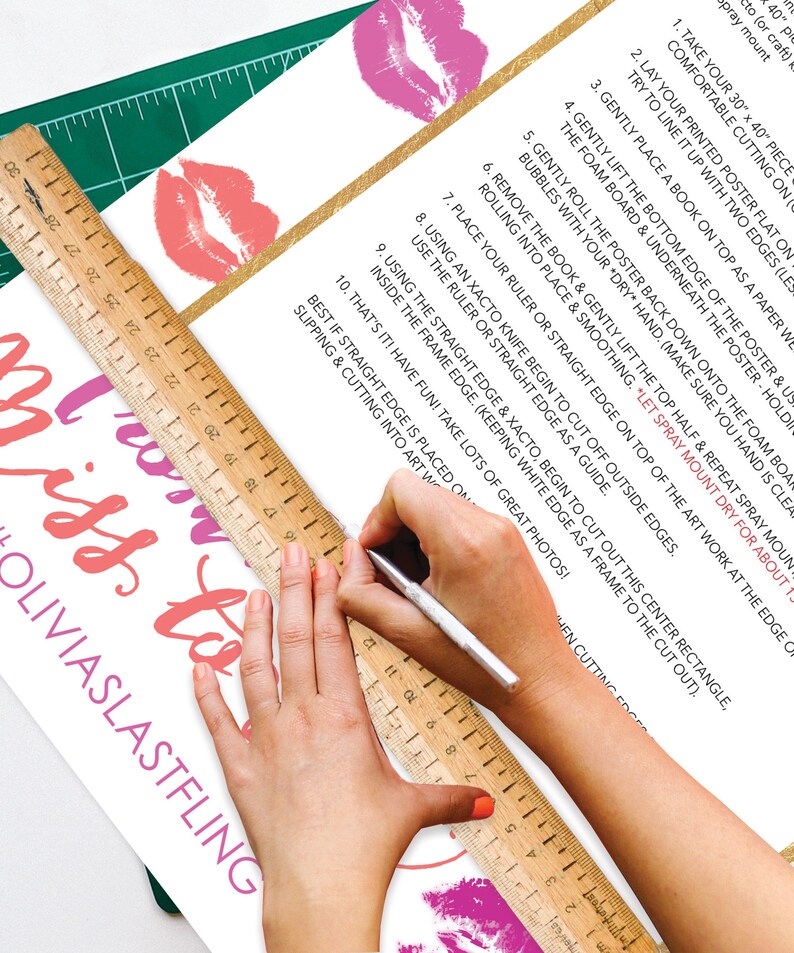 40" piec
cto (or craft) k
spray mount
1. TAKE YOUR 30" x 40" PIECE
COMFORTABLE CUTTING ONTO
2. LAY YOUR PRINTED POSTER FLAT ON
TRY TO LINE IT UP WITH TWO EDGES (LES
3. GENTLY PLACE A BOOK ON TOP AS A PAPER WE
4. GENTLY LIFT THE BOTTOM EDGE OF THE POSTER & US
THE FOAM BOARD & UNDERNEATH THE POSTER - HOLDIN
5. GENTLY ROLL THE POSTER BACK DOWN ONTO THE FOAM BOARD
BUBBLES WITH YOUR *DRY* HAND (MAKE SURE YOU HAND IS CLEA
6. REMOVE THE BOOK & GENTLY LIFT THE TOP HALF & REPEAT SPRAY MOUN
ROLLING INTO PLACE & SMOOTHING. *LET SPRAY MOUNT DRY FOR ABOUT 15
7. PLACE YOUR RULER OR STRAIGHT EDGE ON TOP OF THE ART WORK AT THE EDGE OF
8. USING AN XACTO KNIFE BEGIN TO CUT OFF OUTSIDE EDGES.
USE THE RULER OR STRAIGHT EDGE AS A GUIDE.
9. USING THE STRAIGHT EDGE & XACTO, BEGIN TO CUT OUT THIS CENTER RECTANGLE,
INSIDE THE FRAME EDGE. (KEEPING WHITE EDGE AS A FRAME TO THE CUT OUT).
10. THAT'S IT! HAVE FUN! TAKE LOTS OF GREAT PHOTOS!
BEST IF STRAIGHT EDGE IS PLACED ON WHEN CUTTING EDGES
SLIPPING & CUTTING INTO ART WO
From
Miss to
#OLIVIASLASTFLING
30 28 27 26 25 24 23 22 21 20 19 18 17 16 12 11 10 9 8 7 5 4 3 2 1